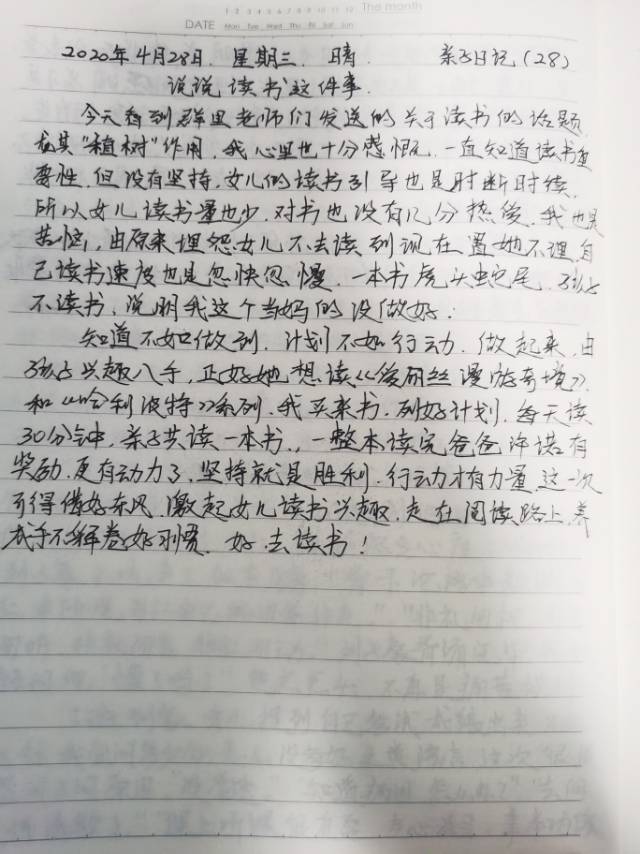 1 2 3 4 5 6 7 8 9 10 11 12 The month
DATE Mon Tue Wed Thu Fri Sat Sun
2020年4月28日. 星期三. 晴. 亲子日记(28)
说说读书这件事.
今天看到群里老师们发送的关于读书的话题,
尤其"植树"作用, 我心里也十分感慨. 一直知道读书重
要性. 但没有坚持, 女儿的读书引导也是时断时续.
所以女儿读书量也少. 对书也没有几分热爱. 我也是
苦恼, 由原来埋怨女儿不去读到现在置她不理, 自
己读书速度也是忽快忽慢. 一本书虎头蛇尾. 孩子
不读书, 说明我这个当妈的没做好.
知道不如做到. 计划不如行动. 做起来, 由
孩子兴趣入手, 正好她想读《爱丽丝漫游奇境》
和《哈利波特》系列. 我买来书, 列好计划, 每天读
30分钟, 亲子共读一本书, 一整本读完爸爸许诺有
奖励. 更有动力了, 坚持就是胜利. 行动才有力量. 这一次
可得借好东风, 激起女儿读书兴趣. 走在阅读路上, 养
成手不释卷好习惯. 好, 去读书!